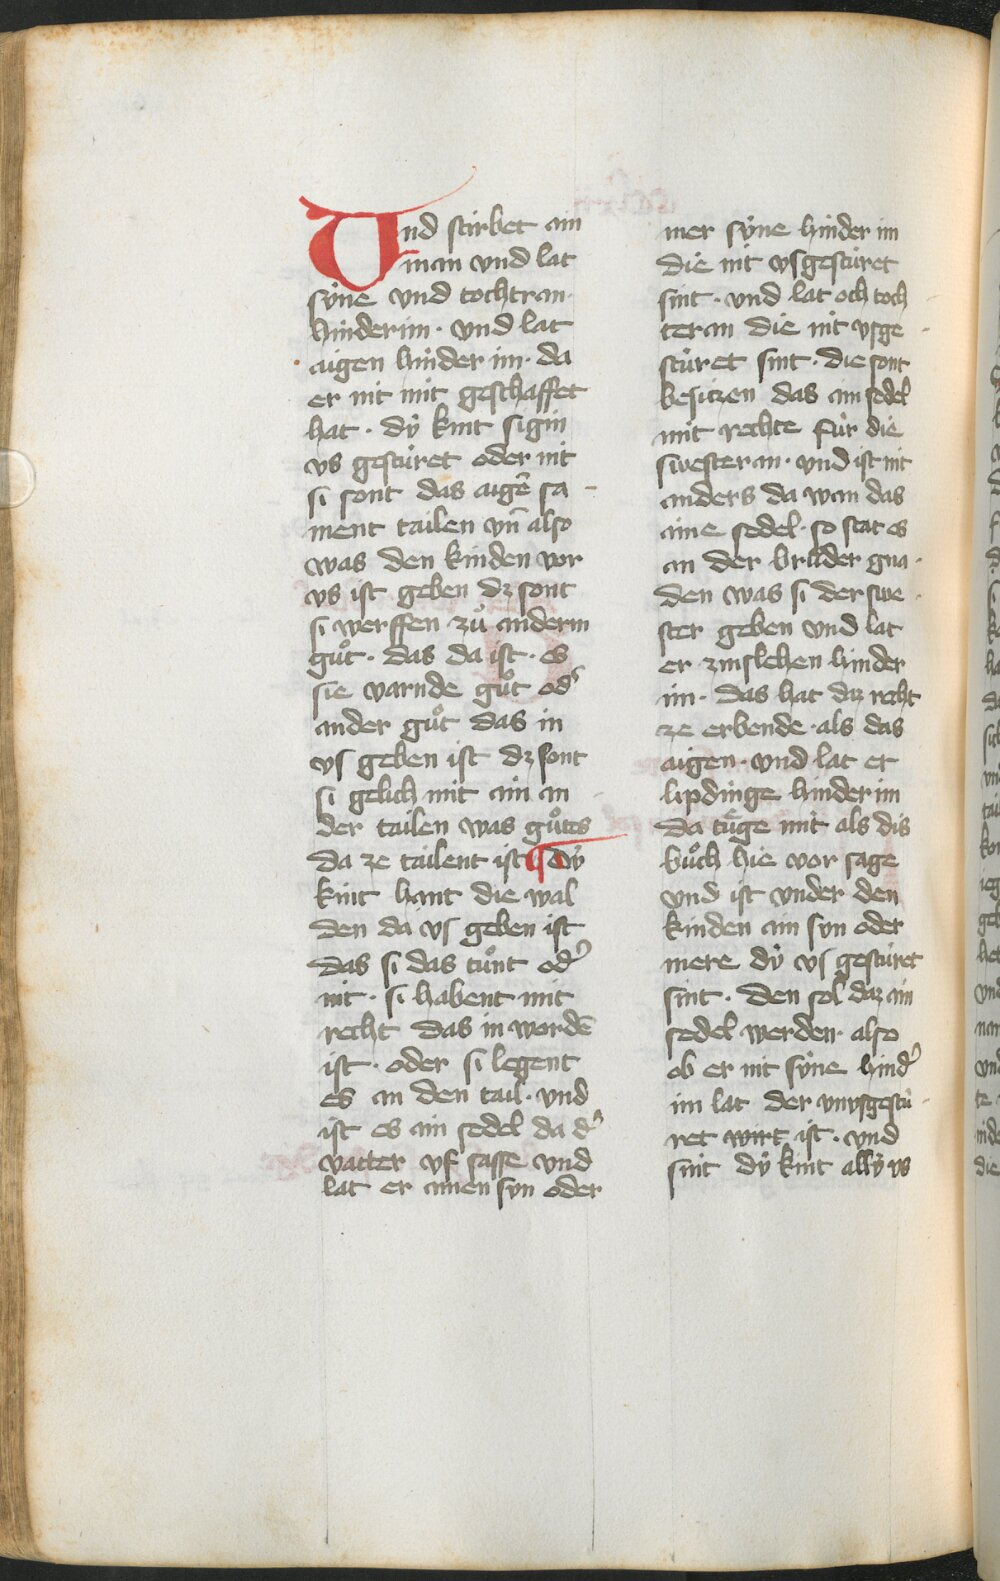 Und stirbet ain
man vnd lat
sy̍ne vnd tochtran·
hinder im · vnd lat
aigen hinder im · da
er nit mit geschaffet
hat · dy̍ kint sigin
vs gestúret oder nit
si sont das aigē sa
ment tailen vn̄ also
was den kinden vor
vs ist geben dz sont
si werffen zuͦ anderm
guͦt · das da ist · es
sie varnde guͦt od᾽
ander guͦt das in
vs geben ist dz sont
si gelich mit ain an
der tailen was guͦtes
da ze tailent ist ¶ dy̍
kint hant die wal
den da vs geben ist
das si das tuͦnt od᾽
nit · si habent mit
recht das in wordē
ist · oder si legent
es an den tail · vnd
ist es ain sedel da d᾽
vatter vf sasse vnd
lat er ainen syn oder
mer sy̍ne hinder im
die nit vsgestúret
sint · vnd lat och toch
teran die nit vsge
stúret sint · die sont
besiczen das ain sedel
mit rechte fúr die
swesteran · vnd ist nit
anders da wan das
aine sedel · so stat es
an der bruͤder gna
den was si der swe
ster geben vnd lat
er zinslehen hinder
im · das hat daz recht
ze erbende · als das
aigen · vnd lat er
lipdinge hinder im
da tuͤge mit als dis
buͦch hie vor sage
vnd ist vnder den
kinden ain syn oder
mere dy̍ vs gestúret
sint · den sol daz ain
sedel werden · also
ob er nit sy̍ne hind᾽
im lat der vnvsgestú
ret wirt ist · vnd
sint dy̍ kint ally̍ vs